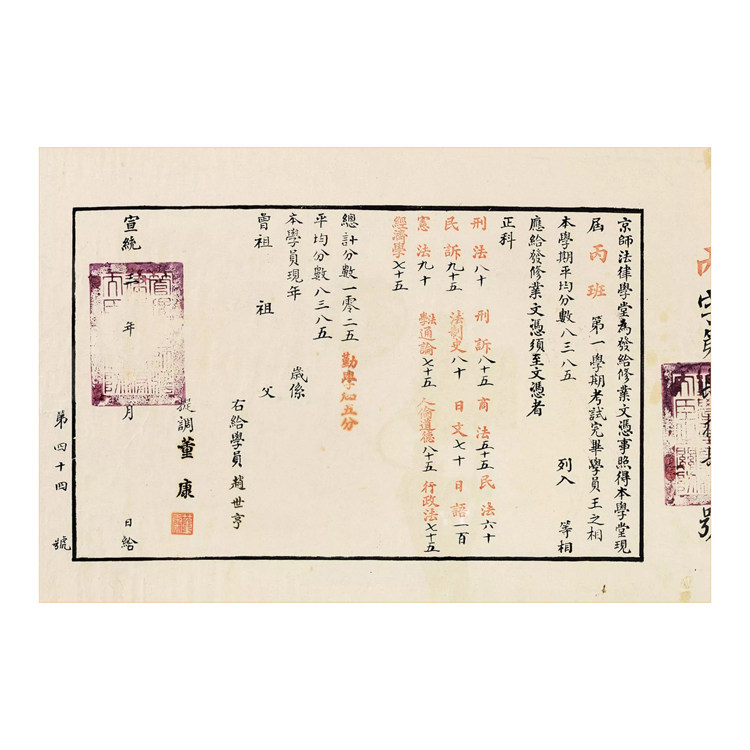 丙字第 號
京師法律學堂為發給修業文憑事照得本學堂現
屆 丙班 第一學期考試完畢學員王之相
本學期平均分數八三八五 列入 等相
應給發修業文憑須至文憑者
正科
刑法八十 刑訴八十五 商法五十五 民法六十
民訴九十五 法制史八十 日文七十 日語一百
憲法九十 通論七十五 人倫道德八十五 行政法七十五
經濟學七十五
總計分數一零二五 勤學加五分
平均分數八三八五
本學員現年 歲係
曾祖 祖 父
右給學員趙世亨
提調董康
宣統 年 月 日給
第四十四號